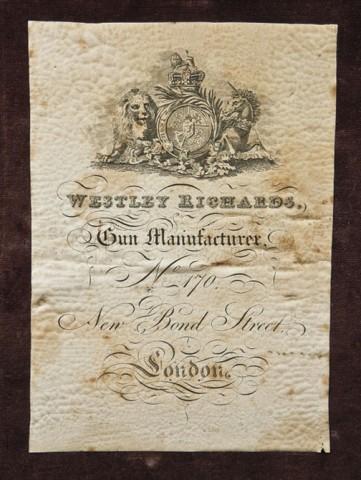 WESTLEY RICHARDS,
Gun Manufacturer,
No. 170.
New Bond Street,
London.